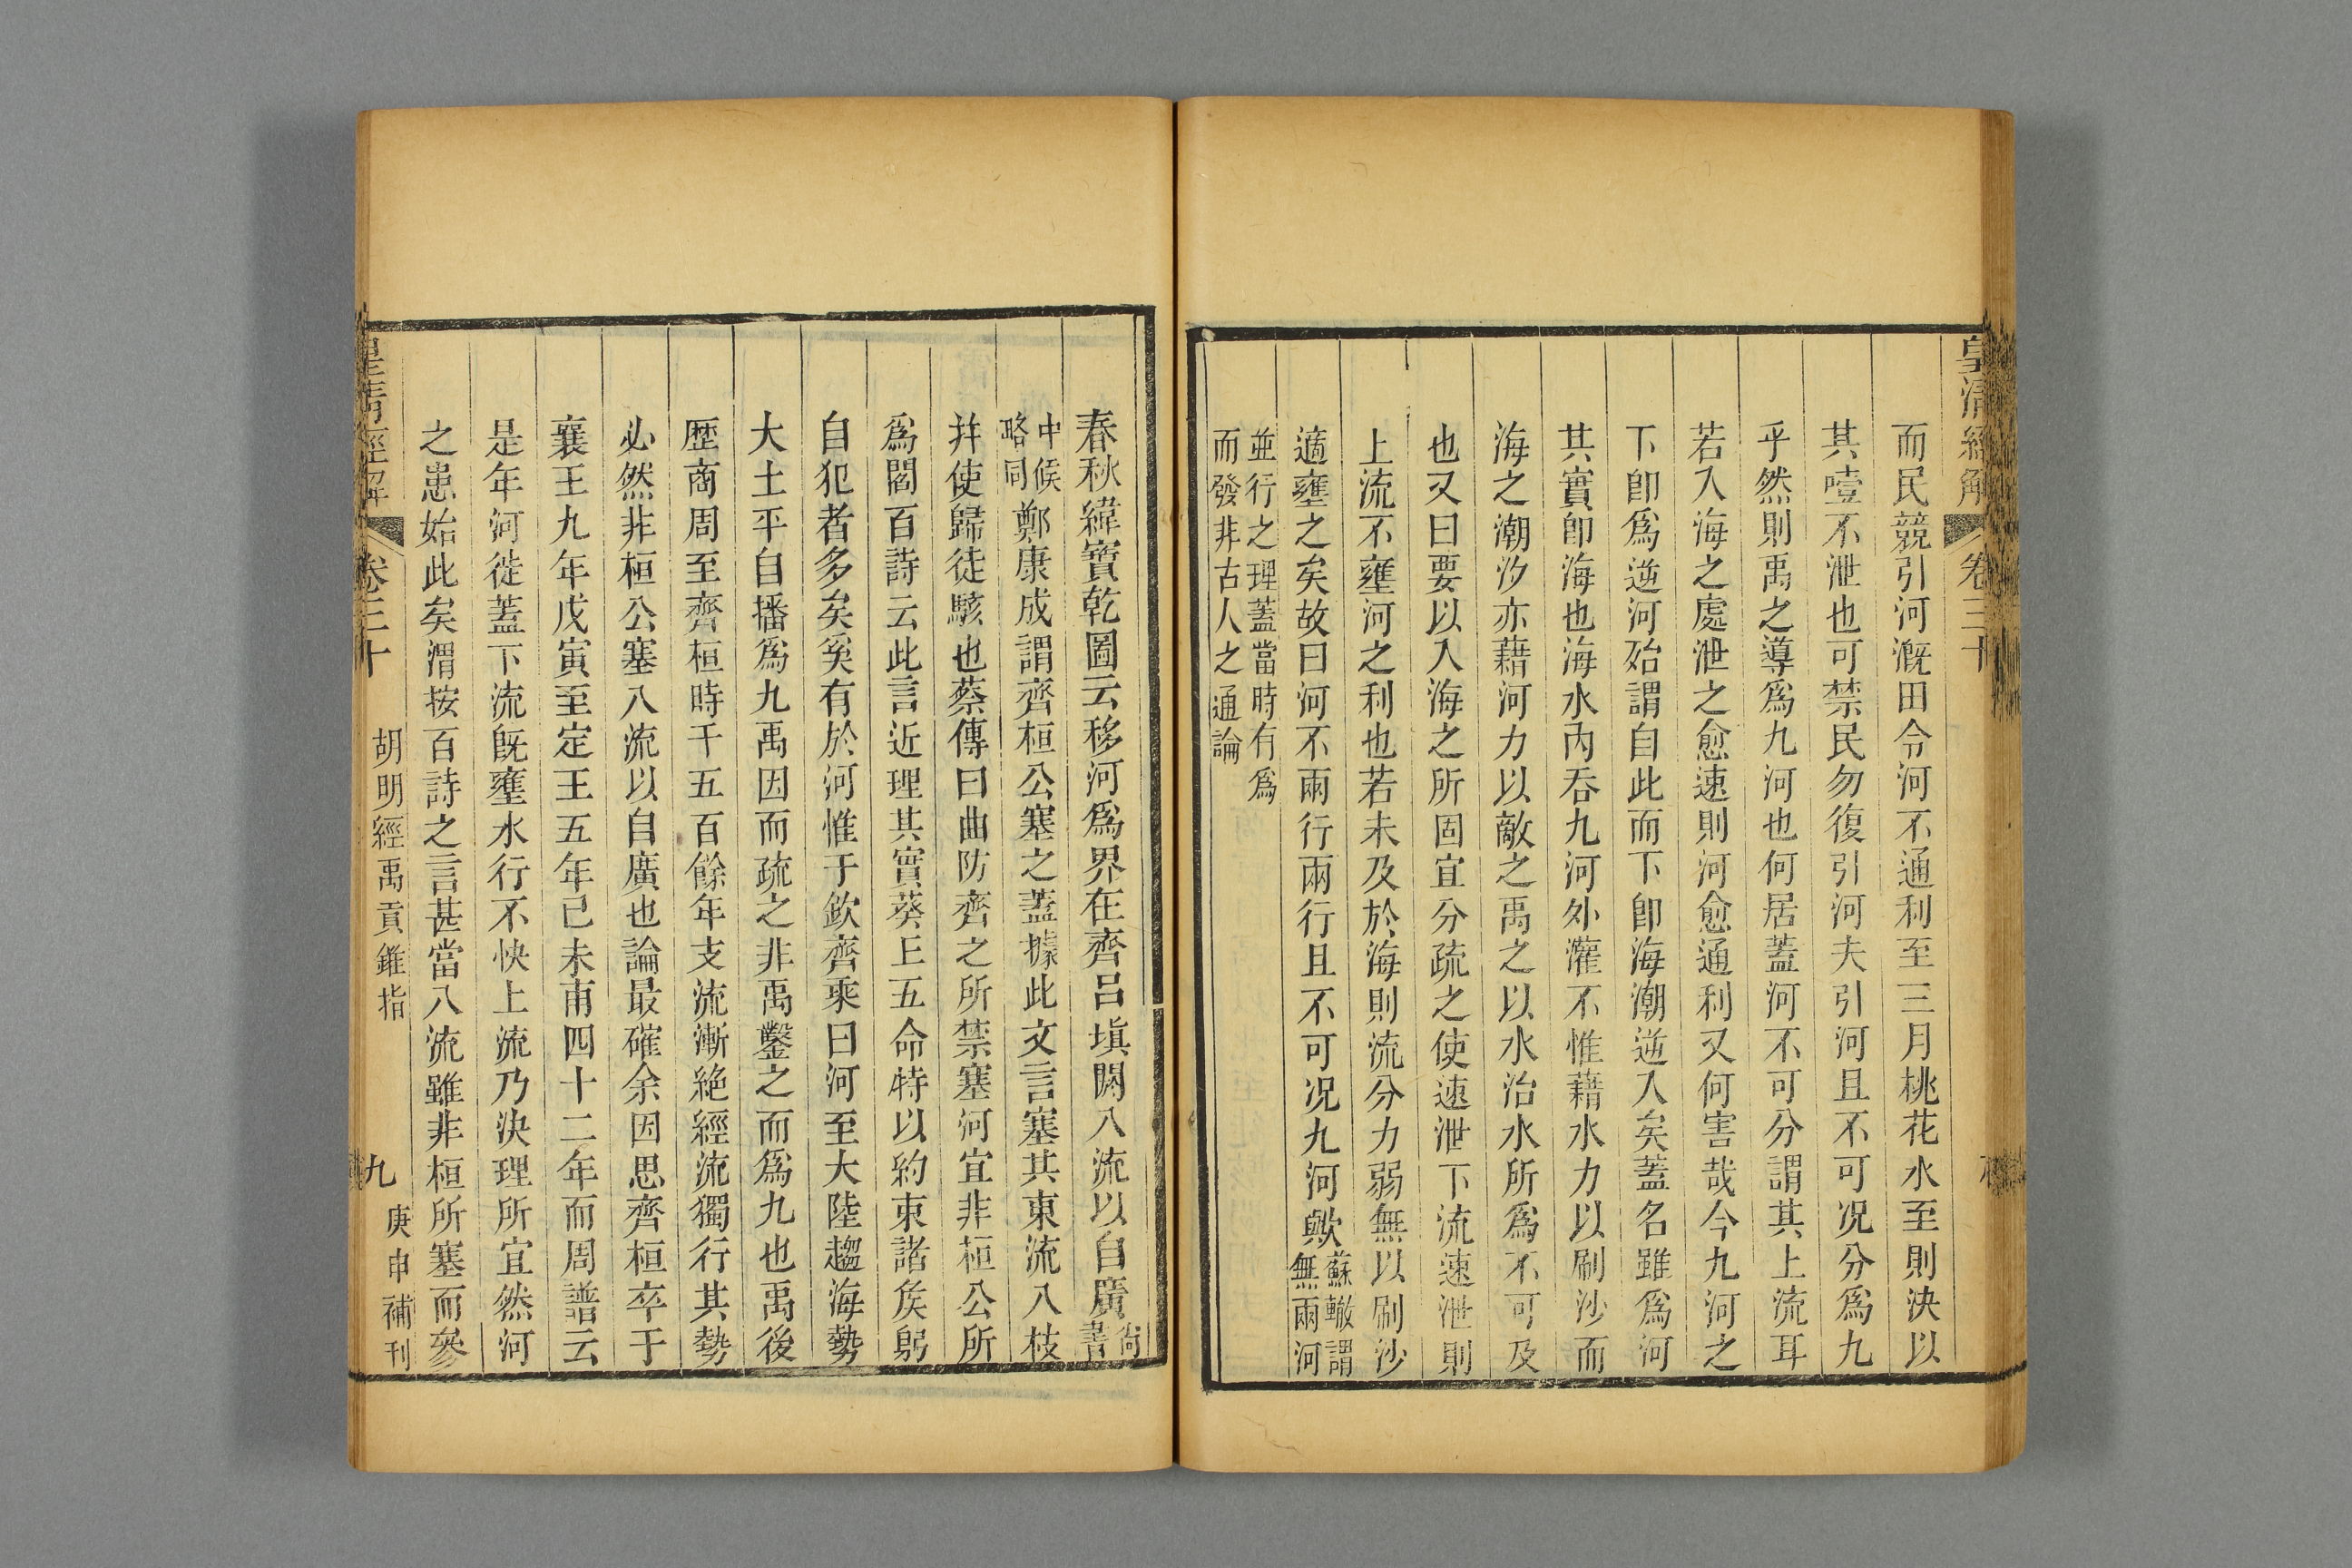 皇清經解
卷三十
而民競引河漑田令河不通利至三月桃花水至則決以
其噎不泄也可禁民勿復引河夫引河且不可况分爲九
乎然則禹之導爲九河也何居蓋河不可分謂其上流耳
若入海之處泄之愈速則河愈通利又何害哉今九河之
下卽爲逆河殆謂自此而下卽海潮逆入矣蓋名雖爲河
其實卽海也海水內吞九河外灌不惟藉水力以刷沙而
海之潮汐亦藉河力以敵之禹之以水治水所爲不可及
也又曰要以入海之所固宜分疏之使速泄下流速泄則
上流不壅河之利也若未及於海則流分力弱無以刷沙
適壅之矣故曰河不兩行兩行且不可況九河歟
蘇轍謂
無兩河
並行之理蓋當時有爲
而發非古人之通論
春秋緯寶乾圖云移河爲界在齊呂塡閼八流以自廣
尙
書
中候
略同
鄭康成謂齊桓公塞之蓋據此文言塞其東流八枝
幷使歸徒駭也蔡傳曰曲防齊之所禁塞河宜非桓公所
爲閻百詩云此言近理其實葵丘五命特以約束諸矦躬
自犯者多矣奚有於河惟于欽齊乘曰河至大陸趨海勢
大土平自播爲九禹因而疏之非禹鑿之而爲九也禹後
歷商周至齊桓時千五百餘年支流漸絕經流獨行其勢
必然非桓公塞八流以自廣也論最確余因思齊桓卒于
襄王九年戊寅至定王五年己未甫四十二年而周譜云
是年河徙蓋下流旣壅水行不快上流乃決理所宜然河
之患始此矣渭按百詩之言甚當八流雖非桓所塞而參
皇清經解
卷三十
胡明經禹貢錐指
九
庚申補刊